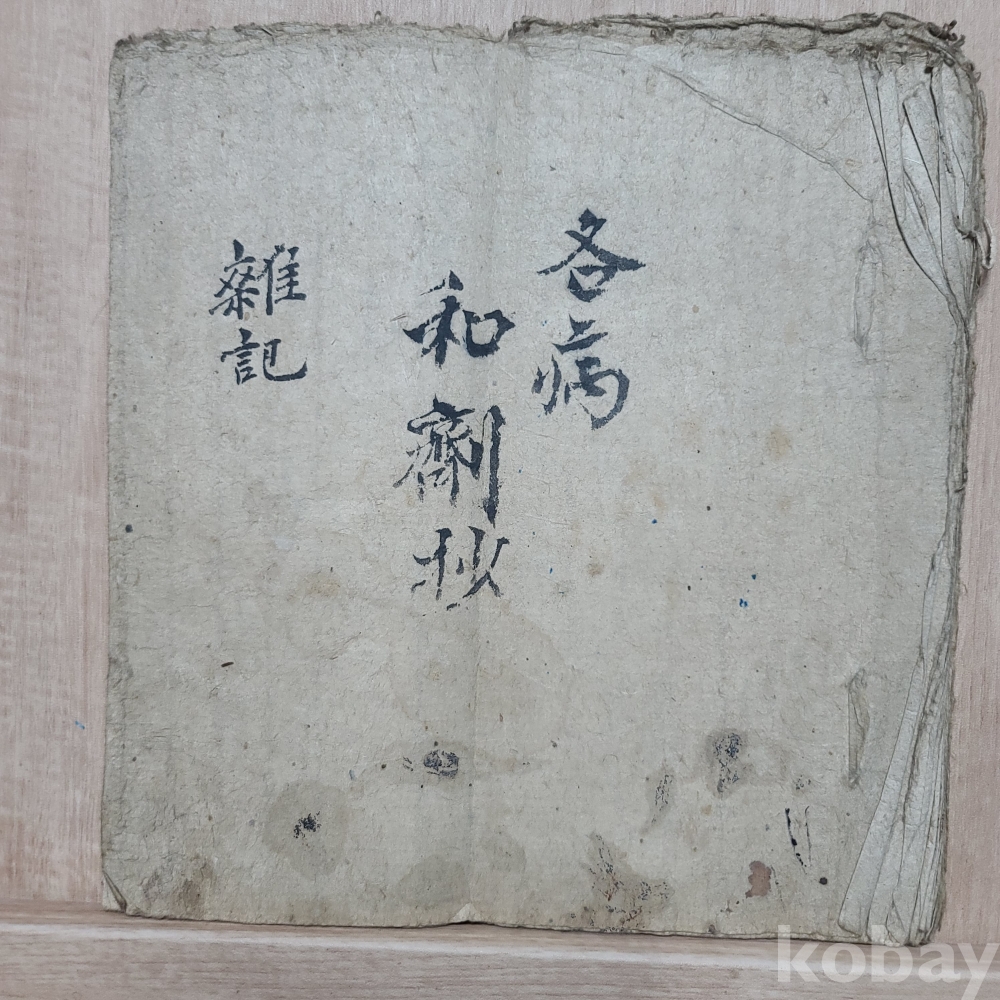 各病
和劑抄
雜記
kobay